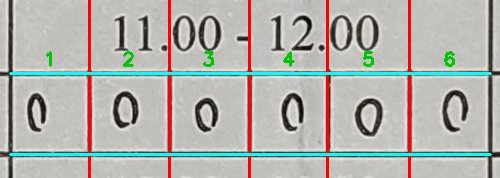 11.00 - 12.00
1 2 3 4 5 6
0 0 0 0 0 0